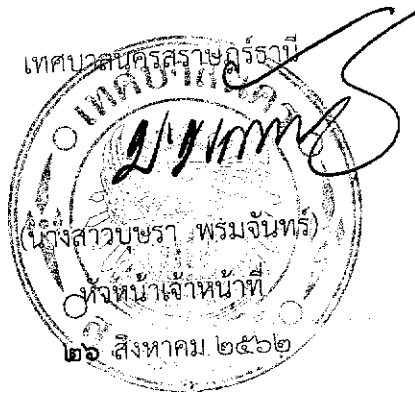 เทศบาลนครสุราษฎร์ธานี
(นางสาวบุษรา พรมจันทร์)
หัวหน้าเจ้าหน้าที่
๒๖ สิงหาคม ๒๕๖๒